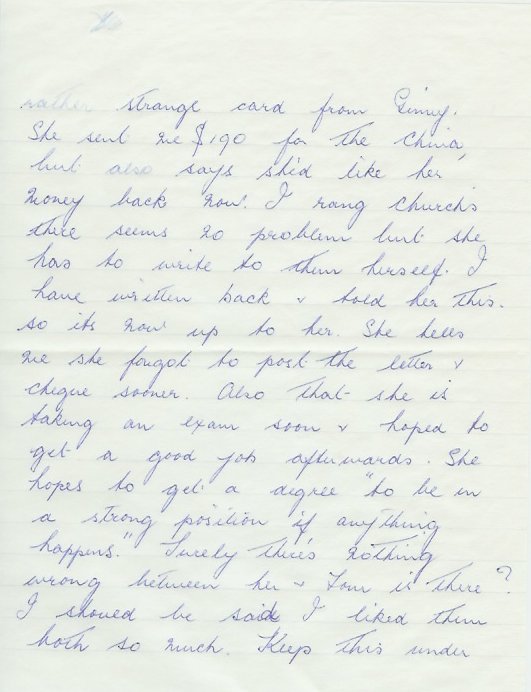 rather strange card from Ginny.
She sent me $190 for the china,
but also says she'd like her
money back now. I rang Church's
there seems no problem but she
has to write to them herself. I
have written back & told her this.
so its now up to her. She tells
me she forgot to post the letter &
cheque sooner. Also that she is
taking an exam soon & hoped to
get a good job afterwards. She
hopes to get a degree "to be in
a strong position if anything
happens." Surely there's nothing
wrong between her & Tom is there?
I should be sad I liked them
both so much. Keep this under